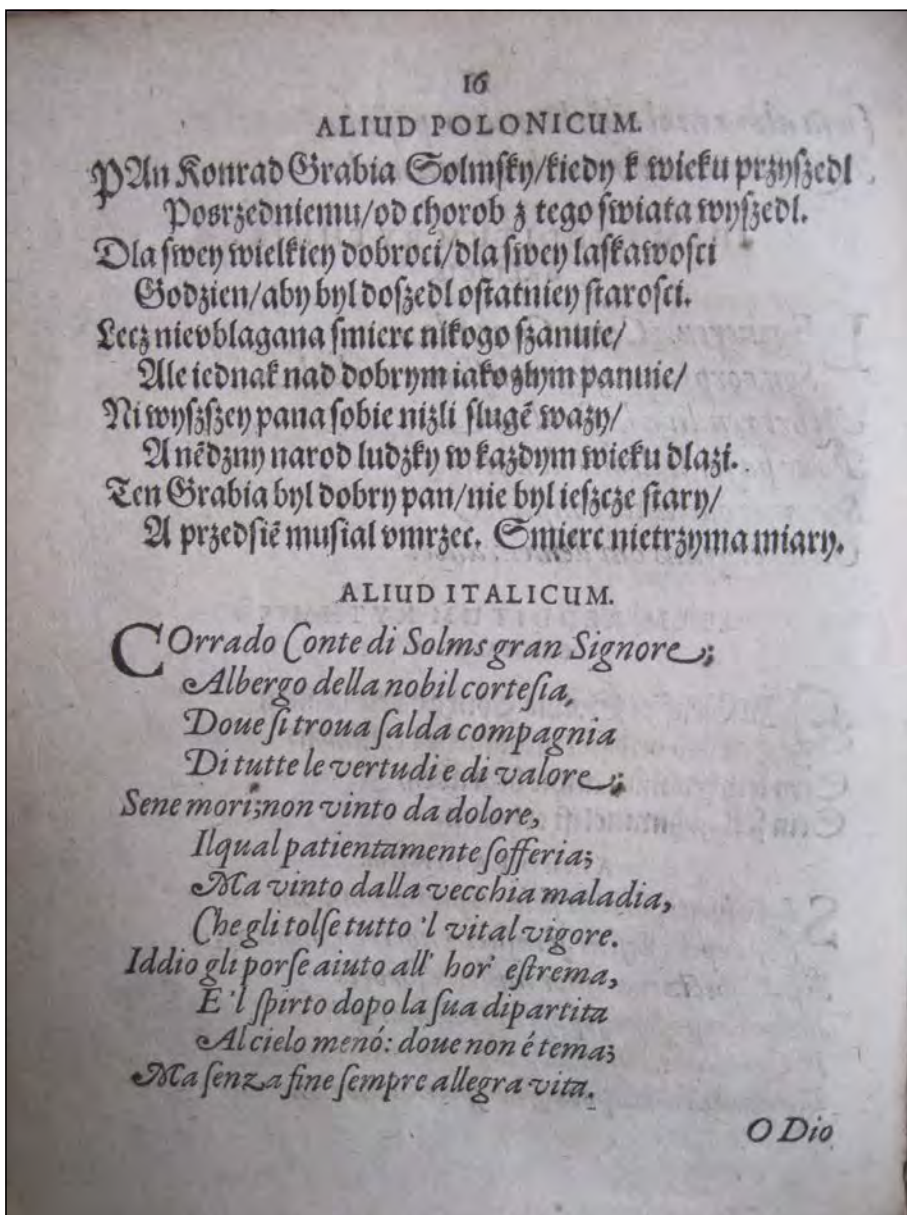 16
ALIUD POLONICUM.
PAn Konrad Grabia Solmſky/kiedy k wieku przyſzedl
Poſrzedniemu/od chorob z tego ſwiata wyſzedl.
Dla ſwey wielkiey dobroci/dla ſwey laſkawoſci
Godzien/aby byl doſzedl oſtatniey ſtaroſci.
Lecz nievblagana ſmierc nikogo ſzanuie/
Ale iednak nad dobrym iako zlym panuie/
Ni wyſzſzey pana ſobie nizli ſlugē wazy/
A nēdzny narod ludzky w kazdym wieku dlazi.
Ten Grabia byl dobry pan/nie byl ieſzcze ſtary/
A przedſiē muſial vmrzec. Smierc nietrzyma miary.
ALIUD ITALICUM.
COrrado Conte di Solms gran Signore;
Albergo della nobil corteſia,
Doue ſi troua ſalda compagnia
Di tutte le vertudi e di valore;
Sene mori; non vinto da dolore,
Ilqual patientamente ſofferia;
Ma vinto dalla vecchia maladia,
Che gli tolſe tutto 'l vital vigore.
Iddio gli porſe aiuto all' hor' eſtrema,
E 'l ſpirto dopo la ſua dipartita
Al cielo menó: doue non é tema;
Ma ſenza fine ſempre allegra vita.
O Dio